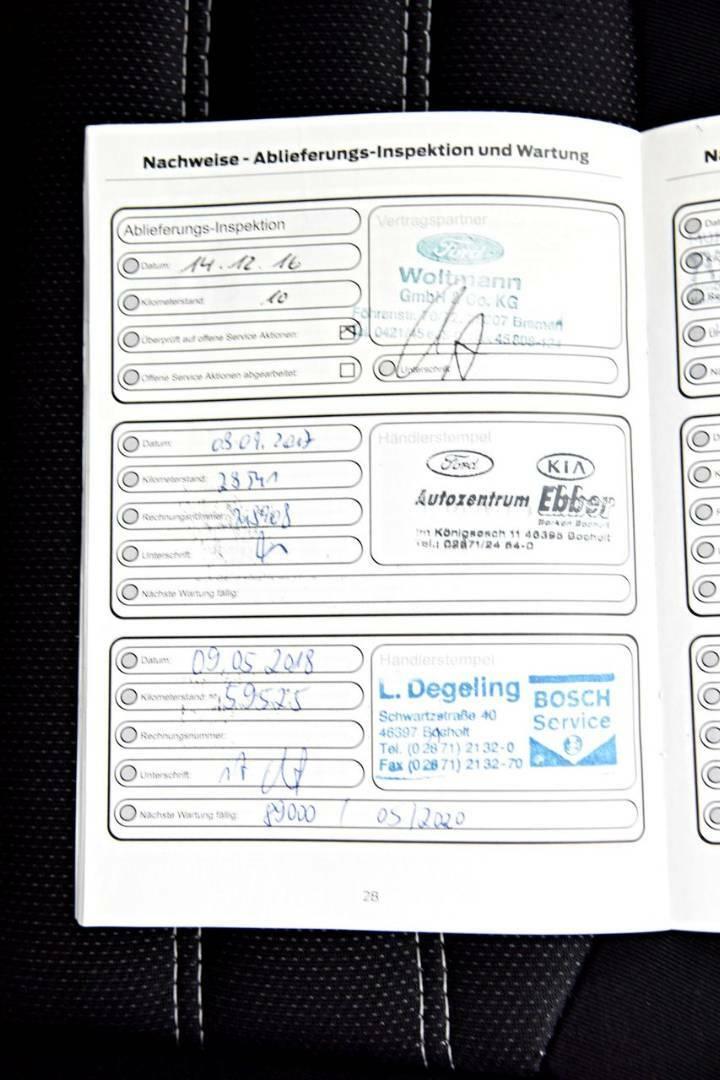 Nachweise - Ablieferungs-Inspektion und Wartung
Ablieferungs-Inspektion
Datum: 14.12.16
Kilometerstand: 10
Überprüft auf offene Service Aktionen:
Offene Service Aktionen abgearbeitet:
Vertragspartner
Ford
Woltmann
GmbH & Co. KG
Bremen
Tel. 0421/45
Unterschrift
Datum: 2017
Kilometerstand:
Rechnungsnummer:
Unterschrift:
Nächste Wartung fällig:
Händlerstempel
Ford KIA
Autozentrum Ebber
Borken Bocholt
Im Königsesch 11 46395 Bocholt
Tel.: 02871/24 64-0
Datum: 09.05.2018
Kilometerstand: 59525
Rechnungsnummer:
Unterschrift:
Nächste Wartung fällig: 89000 / 05/2020
Händlerstempel
L. Degeling
Schwartzstraße 40
46397 Bocholt
Tel. (02871) 2132-0
Fax (02871) 2132-70
BOSCH
Service
28